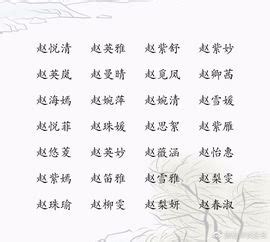 赵悦清 赵英雅 赵紫舒 赵紫妙
赵英岚 赵曼晴 赵觅风 赵卿茜
赵海嫣 赵婉萍 赵婉清 赵雪媛
赵悦菲 赵珠媛 赵思絮 赵紫雁
赵悠菱 赵英妙 赵薇涵 赵怡惠
赵紫嫣 赵笛雅 赵雪雅 赵梨雯
赵珠瑜 赵柳雯 赵梨妍 赵春淑